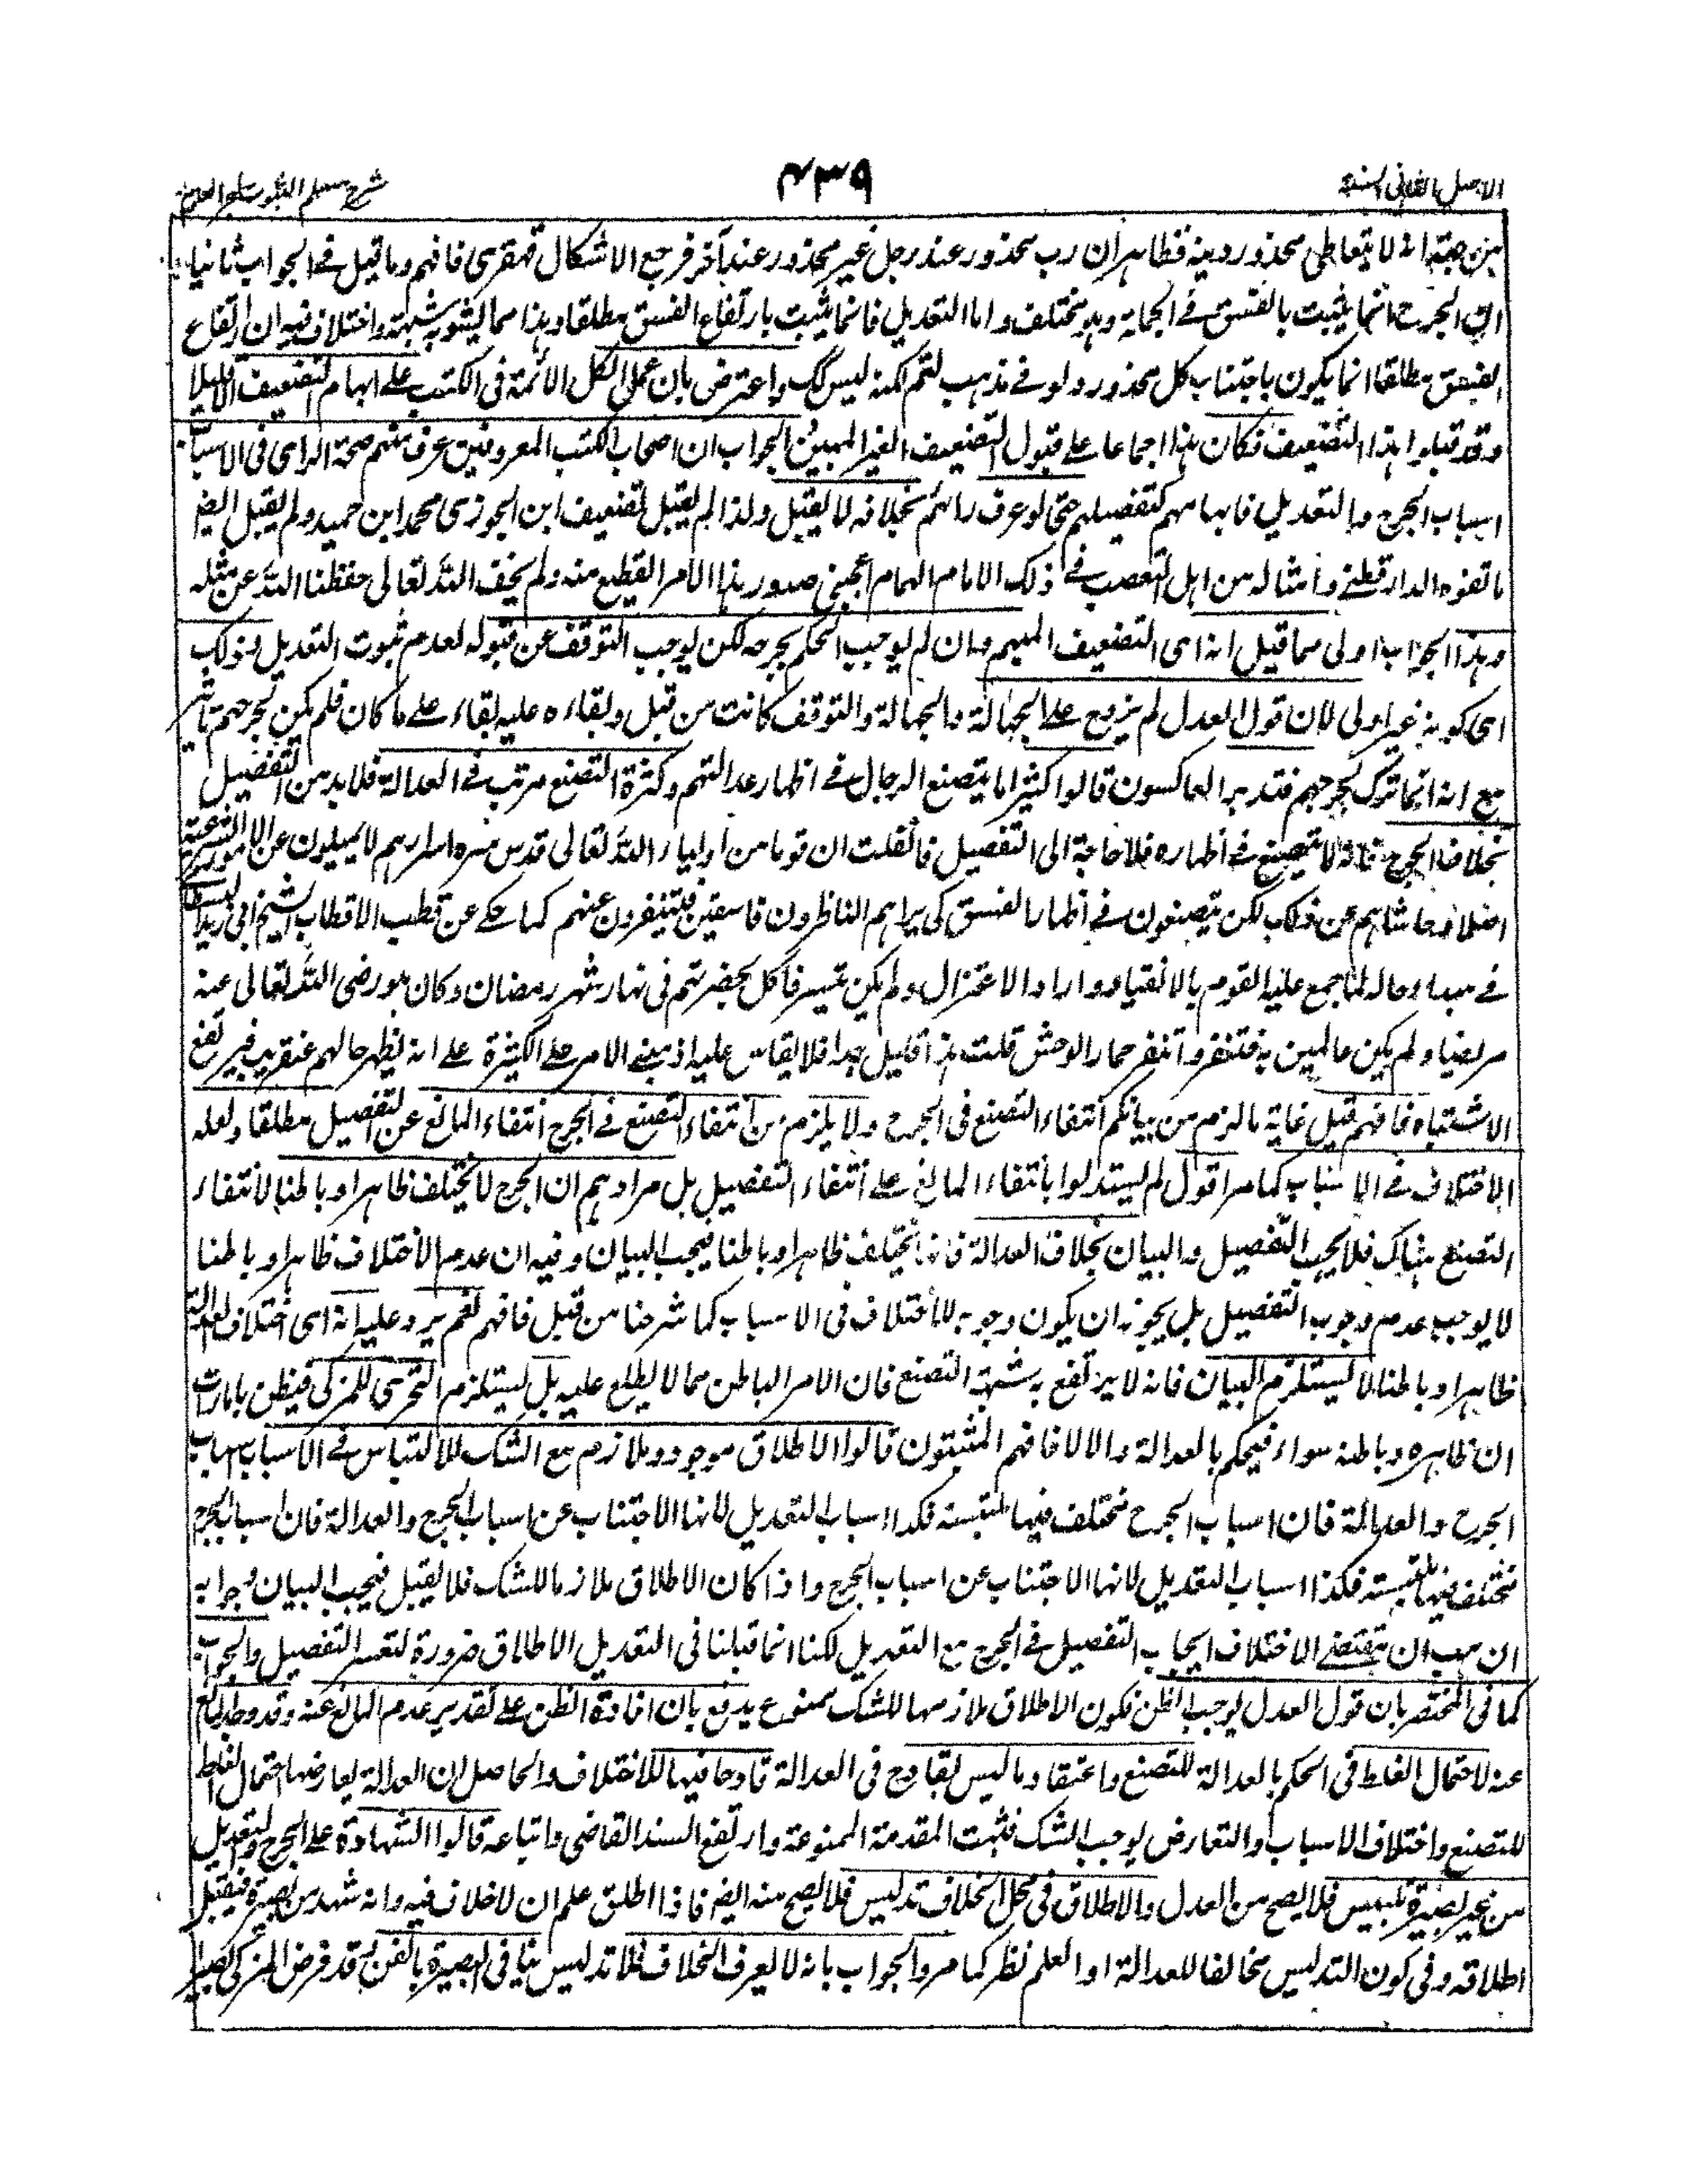 الاصل الثانى السنة
٤٣٩
شرح مسلم الثبوت لبحر العلوم
من جهة انه لا يتعاطى محذور دينه فظاهر ان رب محذور عند رجل غير محذور عند آخر فرجع الاشكال قهقرى فافهم وما قيل فى الجواب ثانيا
ان الجرح انما يثبت بالفسق فى الجملة وهو مختلف واما التعديل فانما يثبت بارتفاع الفسق مطلقا وهذا مما لا يشوبه شبهة واختلاف فيه ان ارتفاع
الفسق مطلقا انما يكون باجتناب كل محذور ولو فى مذهب لتم لكنه ليس كك واعترض بان عمل الكل الائمة فى الكتب على ابهام التضعيف الا قليلا
وقد قبلوا هذا التضعيف فكان هذا اجماعا على قبول التضعيف الغير المبين والجواب ان اصحاب الكتب المعروفين عرف منهم صحة الراى فى الاسباب
اسباب الجرح والتعديل فابهامهم كتفصيلهم حتى لو عرف رائهم بخلافه لا يقبل ولذا لم يقبل تضعيف ابن الجوزى محمد ابن حميد ولم يقبل ايضا
ما تفوه الدارقطنى وامثاله من اهل التعصب فى ذلك الامام الهمام اعجبنى صدور هذا الامر الفظيع منه ولم يخف الله تعالى حفظنا الله عن مثله
وهذا الجواب اولى مما قيل انه اى التضعيف المبهم وان لم يوجب الحكم بجرحه لكن يوجب التوقف عن قبوله لعدم ثبوت التعديل وذلك
اى كونه غير اولى لان قول العدل لم يزوح على الجهالة والجهالة والتوقف كانت من قبل وبقاءه عليه بقاء على ما كان فلم يكن لجرحهم تاثير
مع انه انما ترك بجرحهم فتدبر العاكسون قالوا كثيرا ما يتصنع الرجال فى اظهار عدالتهم وكثرة التصنع مرتب فى العدالة فلا بد من التفصيل
بخلاف الجرح فانه لا يتصنع فى اظهاره فلا حاجة الى التفصيل فانقلت ان قوما من اولياء الله تعالى قدس سره اسرارهم لا يميلون عن الامور الشرعية
اصلا وحاشاهم عن ذلك لكن يتصنعون فى اظهار الفسق كى يراهم الناظرون فاسقين فيتنفرون عنهم كما حكى عن قطب الاقطاب الشيخ ابى يزيد البسطامى
فى مبداء حاله لما جمع عليه القوم بالانقياد واراد الاعتزال ولم يكن تيسر فاكل بحضرتهم فى نهار شهر رمضان وكان هو رضى الله تعالى عنه
مريضا ولم يكن عالمين به فتنفروا تنفر حمار الوحش قلت هذا قليل جدا فلا يقاس عليه اذ مبنى الامر على الكثرة على انه يظهر حالهم عنقريب فيرتفع
الاشتباه فافهم قيل غاية ما لزم من بيانكم انتفاء التصنع فى الجرح ولا يلزم من انتفاء التصنع فى الجرح انتفاء المانع عن التفصيل مطلقا ولعله
الاختلاف فى الاسباب كما مر اقول لم يستدلوا بانتفاء المانع على انتفاء التفصيل بل مرادهم ان الجرح لا يختلف ظاهرا وباطنا لانتفاء
التصنع هناك فلا يجب التفصيل والبيان بخلاف العدالة فانه يختلف ظاهرا وباطنا فيجب البيان وفيه ان عدم الاختلاف ظاهرا وباطنا
لا يوجب عدم وجوب التفصيل بل يجوز ان يكون وجوبه للاختلاف فى الاسباب كما شرحنا من قبل فافهم نعم يرد عليه انه اى اختلاف العدالة
ظاهرا وباطنا لا يستلزم البيان فانه لا يرتفع به شبهة التصنع فان الامر الباطن مما لا يطلع عليه بل يستلزم التحرى للمزكى فيظن بامارات
ان ظاهره وباطنه سواء فيحكم بالعدالة والا لا فافهم المثبتون قالوا الاطلاق موجود وملازم مع الشك للالتباس فى الاسباب اسباب
الجرح والعدالة فان اسباب الجرح مختلف فيها ملتبسة فكذا اسباب التعديل لانها الاجتناب عن اسباب الجرح والعدالة فان اسباب الجرح
مختلف فيها ملتبسة فكذا اسباب التعديل لانها الاجتناب عن اسباب الجرح واذا كان الاطلاق ملازما للشك فلا يقبل فيجب البيان وجوابه
ان هب ان يقتضى الاختلاف ايجاب التفصيل فى الجرح مع التعديل لكنا انما قبلنا فى التعديل الاطلاق ضرورة لتعسر التفصيل والجواب
كما فى المختصر بان قول العدل يوجب الظن فكون الاطلاق ملازمها للشك ممنوع يدفع بان افادة الظن على تقدير عدم المانع عنه وقد وجد المانع
عنه لاحتمال الغلط فى الحكم بالعدالة للتصنع واعتقاد ما ليس بقادح فى العدالة قادحا فيها للاختلاف والحاصل ان العدالة يعارضها احتمال الغلط
للتصنع واختلاف الاسباب والتعارض يوجب الشك فثبت المقدمة الممنوعة وارتفع السند القاضى واتباعه قالوا الشهادة على الجرح والتعديل
من غير بصيرة تلبيس فلا يصح من العدل والاطلاق فى محل الخلاف تدليس فلا يصح منه ايضا فاذا اطلق علم ان لا خلاف فيه وانه شهد من بصيرة فيقبل
اطلاقه وفى كون التدليس مخالفا للعدالة او العلم نظر كما مر والجواب بانه لا يعرف الخلاف فلا تدليس ينافى البصيرة بالفن وقد فرض المزكى بصيرا